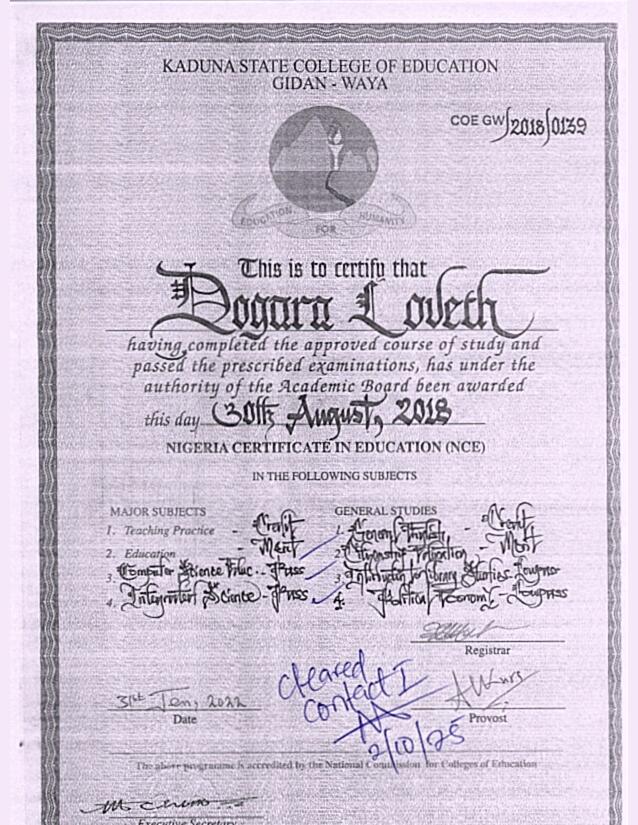 KADUNA STATE COLLEGE OF EDUCATION
GIDAN - WAYA
COE GW/2018/0139
EDUCATION FOR HUMANITY
This is to certify that
Dogara Loveth
having completed the approved course of study and
passed the prescribed examinations, has under the
authority of the Academic Board been awarded
this day 30th August, 2018
NIGERIA CERTIFICATE IN EDUCATION (NCE)
IN THE FOLLOWING SUBJECTS
MAJOR SUBJECTS GENERAL STUDIES
1. Teaching Practice - Credit 1. General English - Credit
2. Education - Merit 2. Citizenship Education - Merit
3. Computer Science Educ. - Pass 3. Introduction to Library Studies - Lowpass
4. Integrated Science - Pass 4. Political Economy - Lowpass
Registrar
cleared
contact I
2/10/25
31st Jan, 2022
Date Provost
The above programme is accredited by the National Commission for Colleges of Education
Executive Secretary